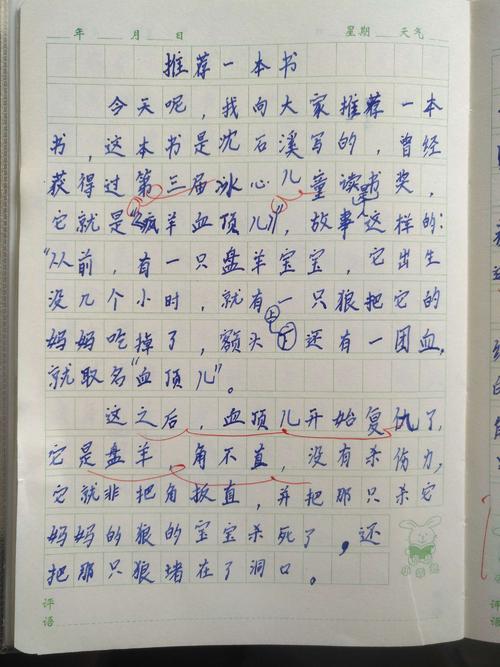 年 月 日 星期 天气
推荐一本书
今天呢，我向大家推荐一本
书，这本书是沈石溪写的，曾经
获得过第三届冰心儿童读书奖，
它就是《疯羊血顶儿》，故事是这样的：
“从前，有一只盘羊宝宝，它出生
没几个小时，就有一只狼把它的
妈妈吃掉了，额头上还有一团血，
就取名“血顶儿”。
这之后，血顶儿开始复仇了，
它是盘羊，角不直，没有杀伤力，
它就非把角扳直，并把那只杀它
妈妈的狼的宝宝杀死了，还
把那只狼堵在了洞口。
评语